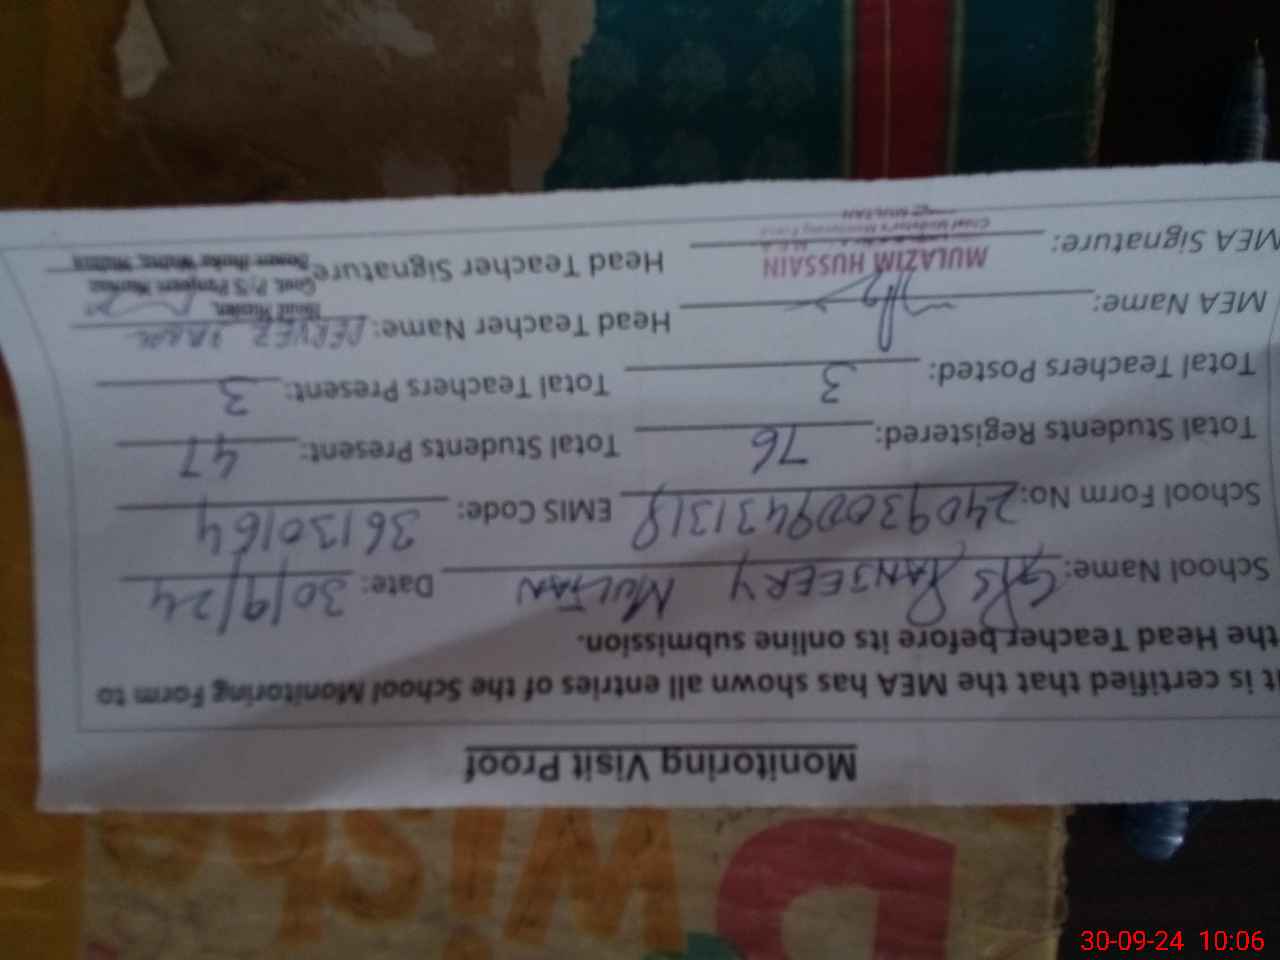 Monitoring Visit Proof
It is certified that the MEA has shown all entries of the School Monitoring Form to
the Head Teacher before its online submission.
School Name: G/PS PANJEERY MULTAN Date: 30/9/24
School Form No: 24093009431318 EMIS Code: 36130164
Total Students Registered: 76 Total Students Present: 47
Total Teachers Posted: 3 Total Teachers Present: 3
MEA Name: Head Teacher Name: PERVEZ
MEA Signature: MULAZIM HUSSAIN Head Teacher Signature
Chief Minister's Monitoring Force
MULTAN
Head Master,
Govt. P/S
Wishe
D
30-09-24 10:06